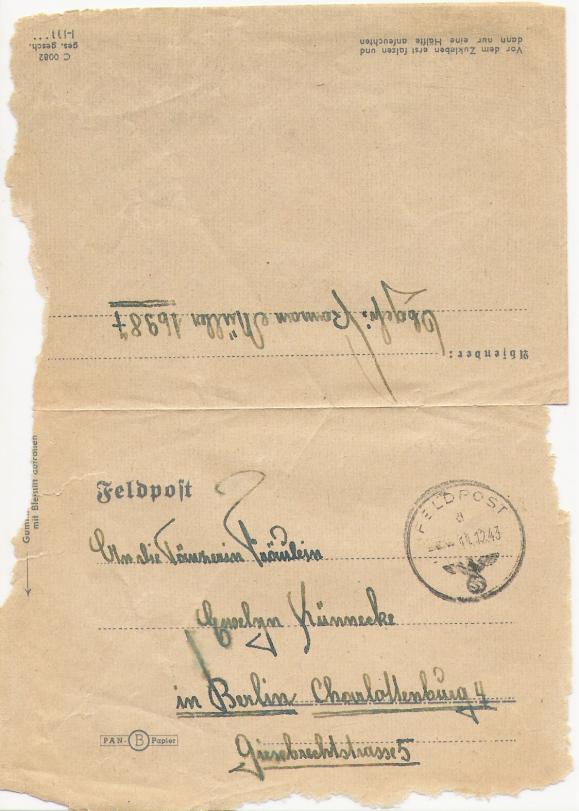 C 0082
ges. gesch.
Vor dem Zukleben erst falzen und
dann nur eine Hälfte anfeuchten
Absender:
Obgefr. Roman Müller 16987
mit Bleistift aufrauen
Feldpost
FELDPOST
a
11.12.43
An die Tänzerin Fräulein
Evelyn Künnecke
in Berlin Charlottenburg 4
Giesebrechtstrasse 5
PAN- B Papier